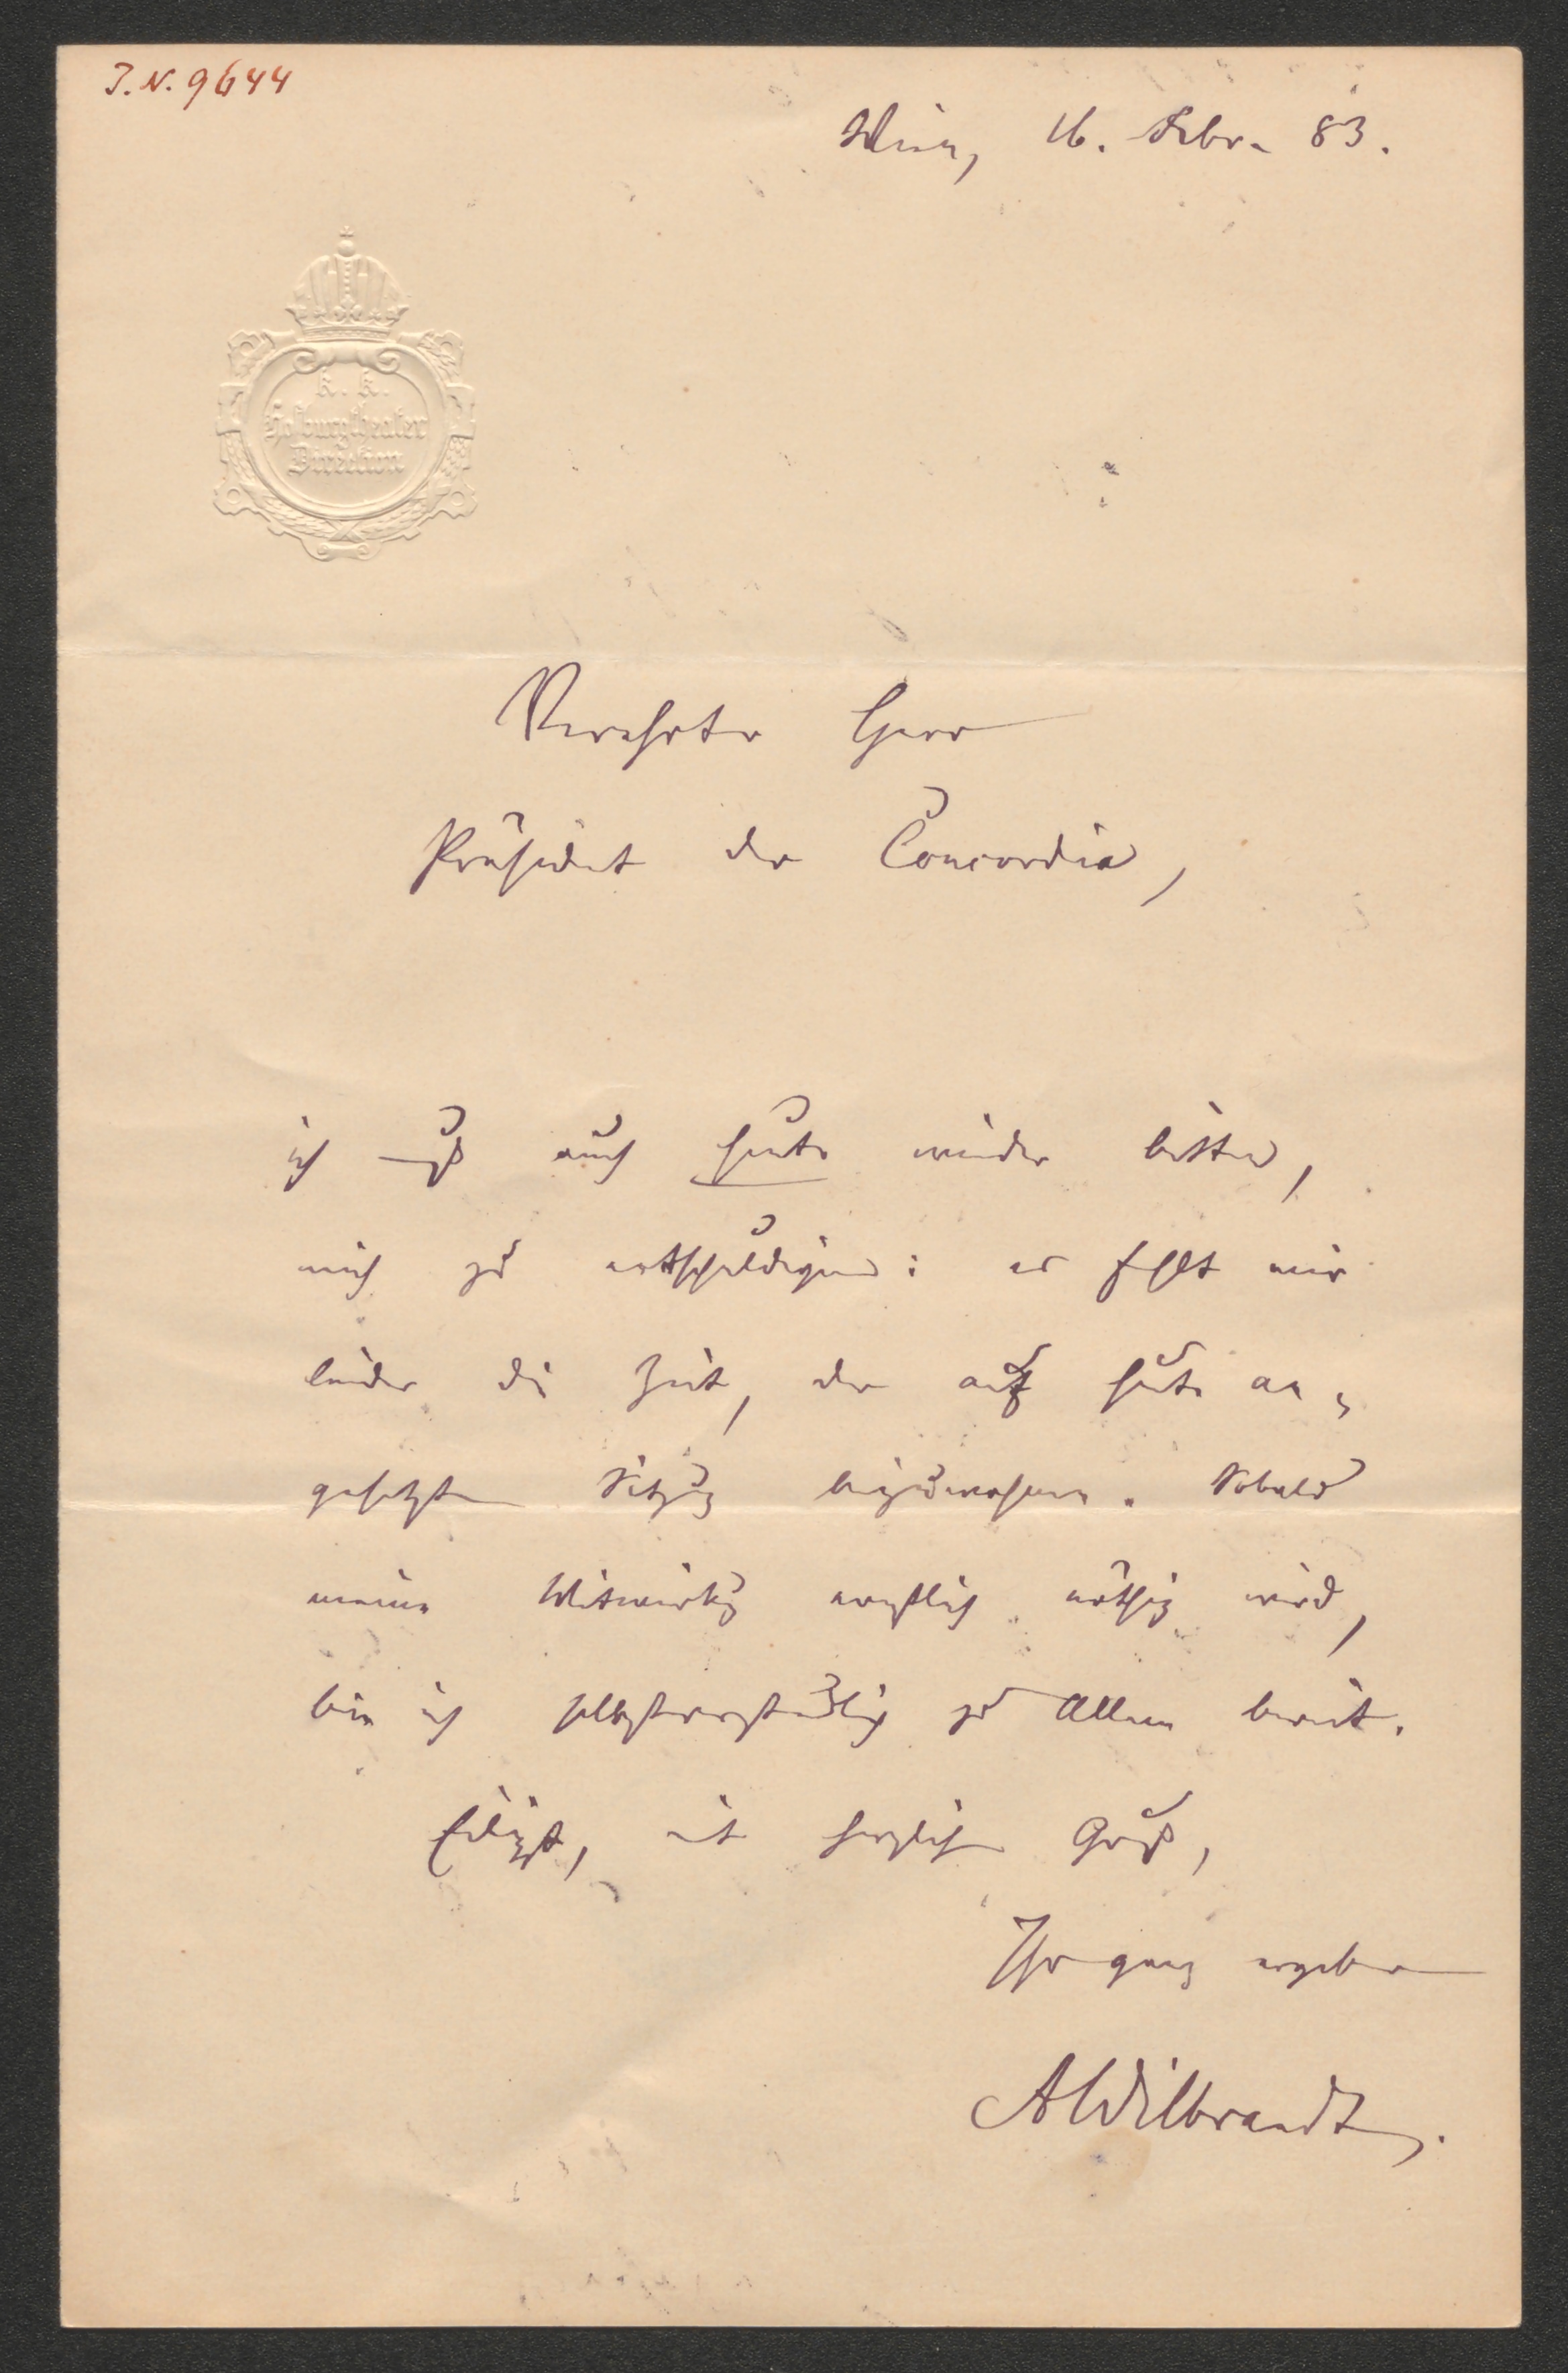 J. N. 9644
Wien, 16. Febr. 83.
k. k.
Hofburgtheater
Direktion
Verehrter Herr
Präsident der Concordia,
ich muß auch heute wieder bitten,
mich zu entschuldigen: es fehlt mir
leider die Zeit, der auf heute an-
gesetzten Sitzung beizuwohnen. Sobald
meine Mitwirkung ernstlich nöthig wird,
bin ich selbstverständlich zu Allem bereit.
Eiligst, mit herzlichem Gruß,
Ihr ganz ergebener
AWilbrandt.